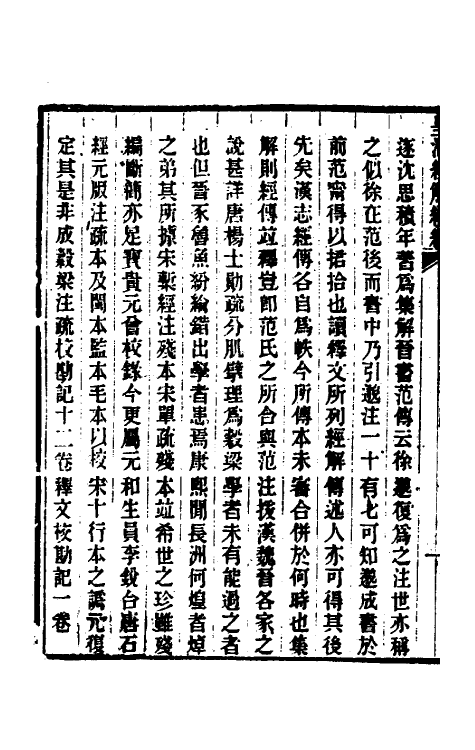 皇清經解續編
遂沈思積年爲集解晉書范傳云徐邈復爲之注世亦稱
之似徐在范後而書中乃引邈注一十有七可知邈成書於
前范甯得以捃拾也讀釋文所列經解傳述人亦可得其後
先矣漢志經傳各自爲帙今所傳本未審合併於何時也集
解則經傳竝釋豈即范氏之所合與范注援漢魏晉各家之
說甚詳唐楊士勛疏分肌擘理爲穀梁學者未有能過之者
也但晉豕魯魚紛綸錯出學者患焉康熙閒長洲何煌者焯
之弟其所據宋槧經注殘本宋單疏殘本竝希世之珍雖殘
編斷簡亦足寶貴元曾校錄今更屬元和生員李銳合唐石
經元版注疏本及閩本監本毛本以校宋十行本之譌元復
定其是非成穀梁注疏校勘記十二卷釋文校勘記一卷